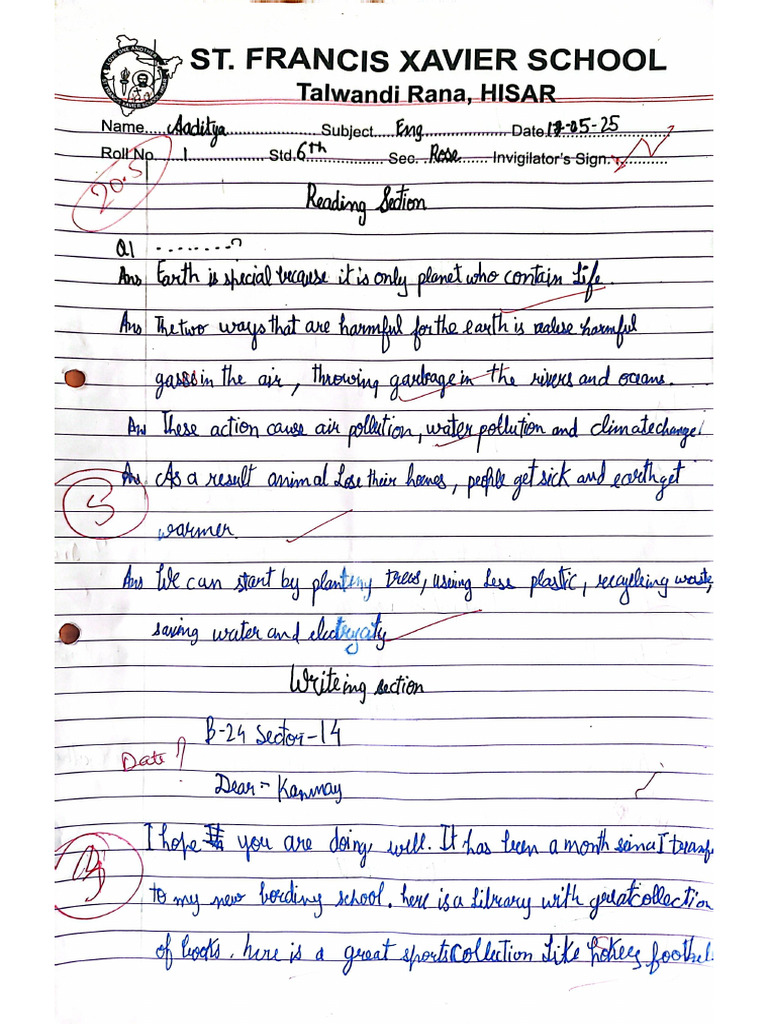 ST. FRANCIS XAVIER SCHOOL
Talwandi Rana, HISAR
Name.....Aaditya..................... Subject.....Eng.................... Date.12-05-25
Roll No.....1.................. Std.6th.................. Sec. ..Rose....... Invigilator's Sign.
20.5
Reading Section
Q1 --------?
Ans Earth is special because it is only planet who contain life.
Ans The two ways that are harmful for the earth is realese harmful
gasses in the air, throwing garbage in the rivers and oceans.
Ans These action cause air pollution, water pollution and climate change.
Ans As a result animal lose their homes, people get sick and earth get
5
warmer.
Ans We can start by planteny trees, using less plastic, recycleing waste,
saving water and electrycity
Writeing section
B-24 Sector-14
Date ?
Dear :- Kanmay
I hope you are doing well. It has been a month I transfe
to my new bording school. here is a library with great collection
of books. here is a great sports collection like hokey footbel